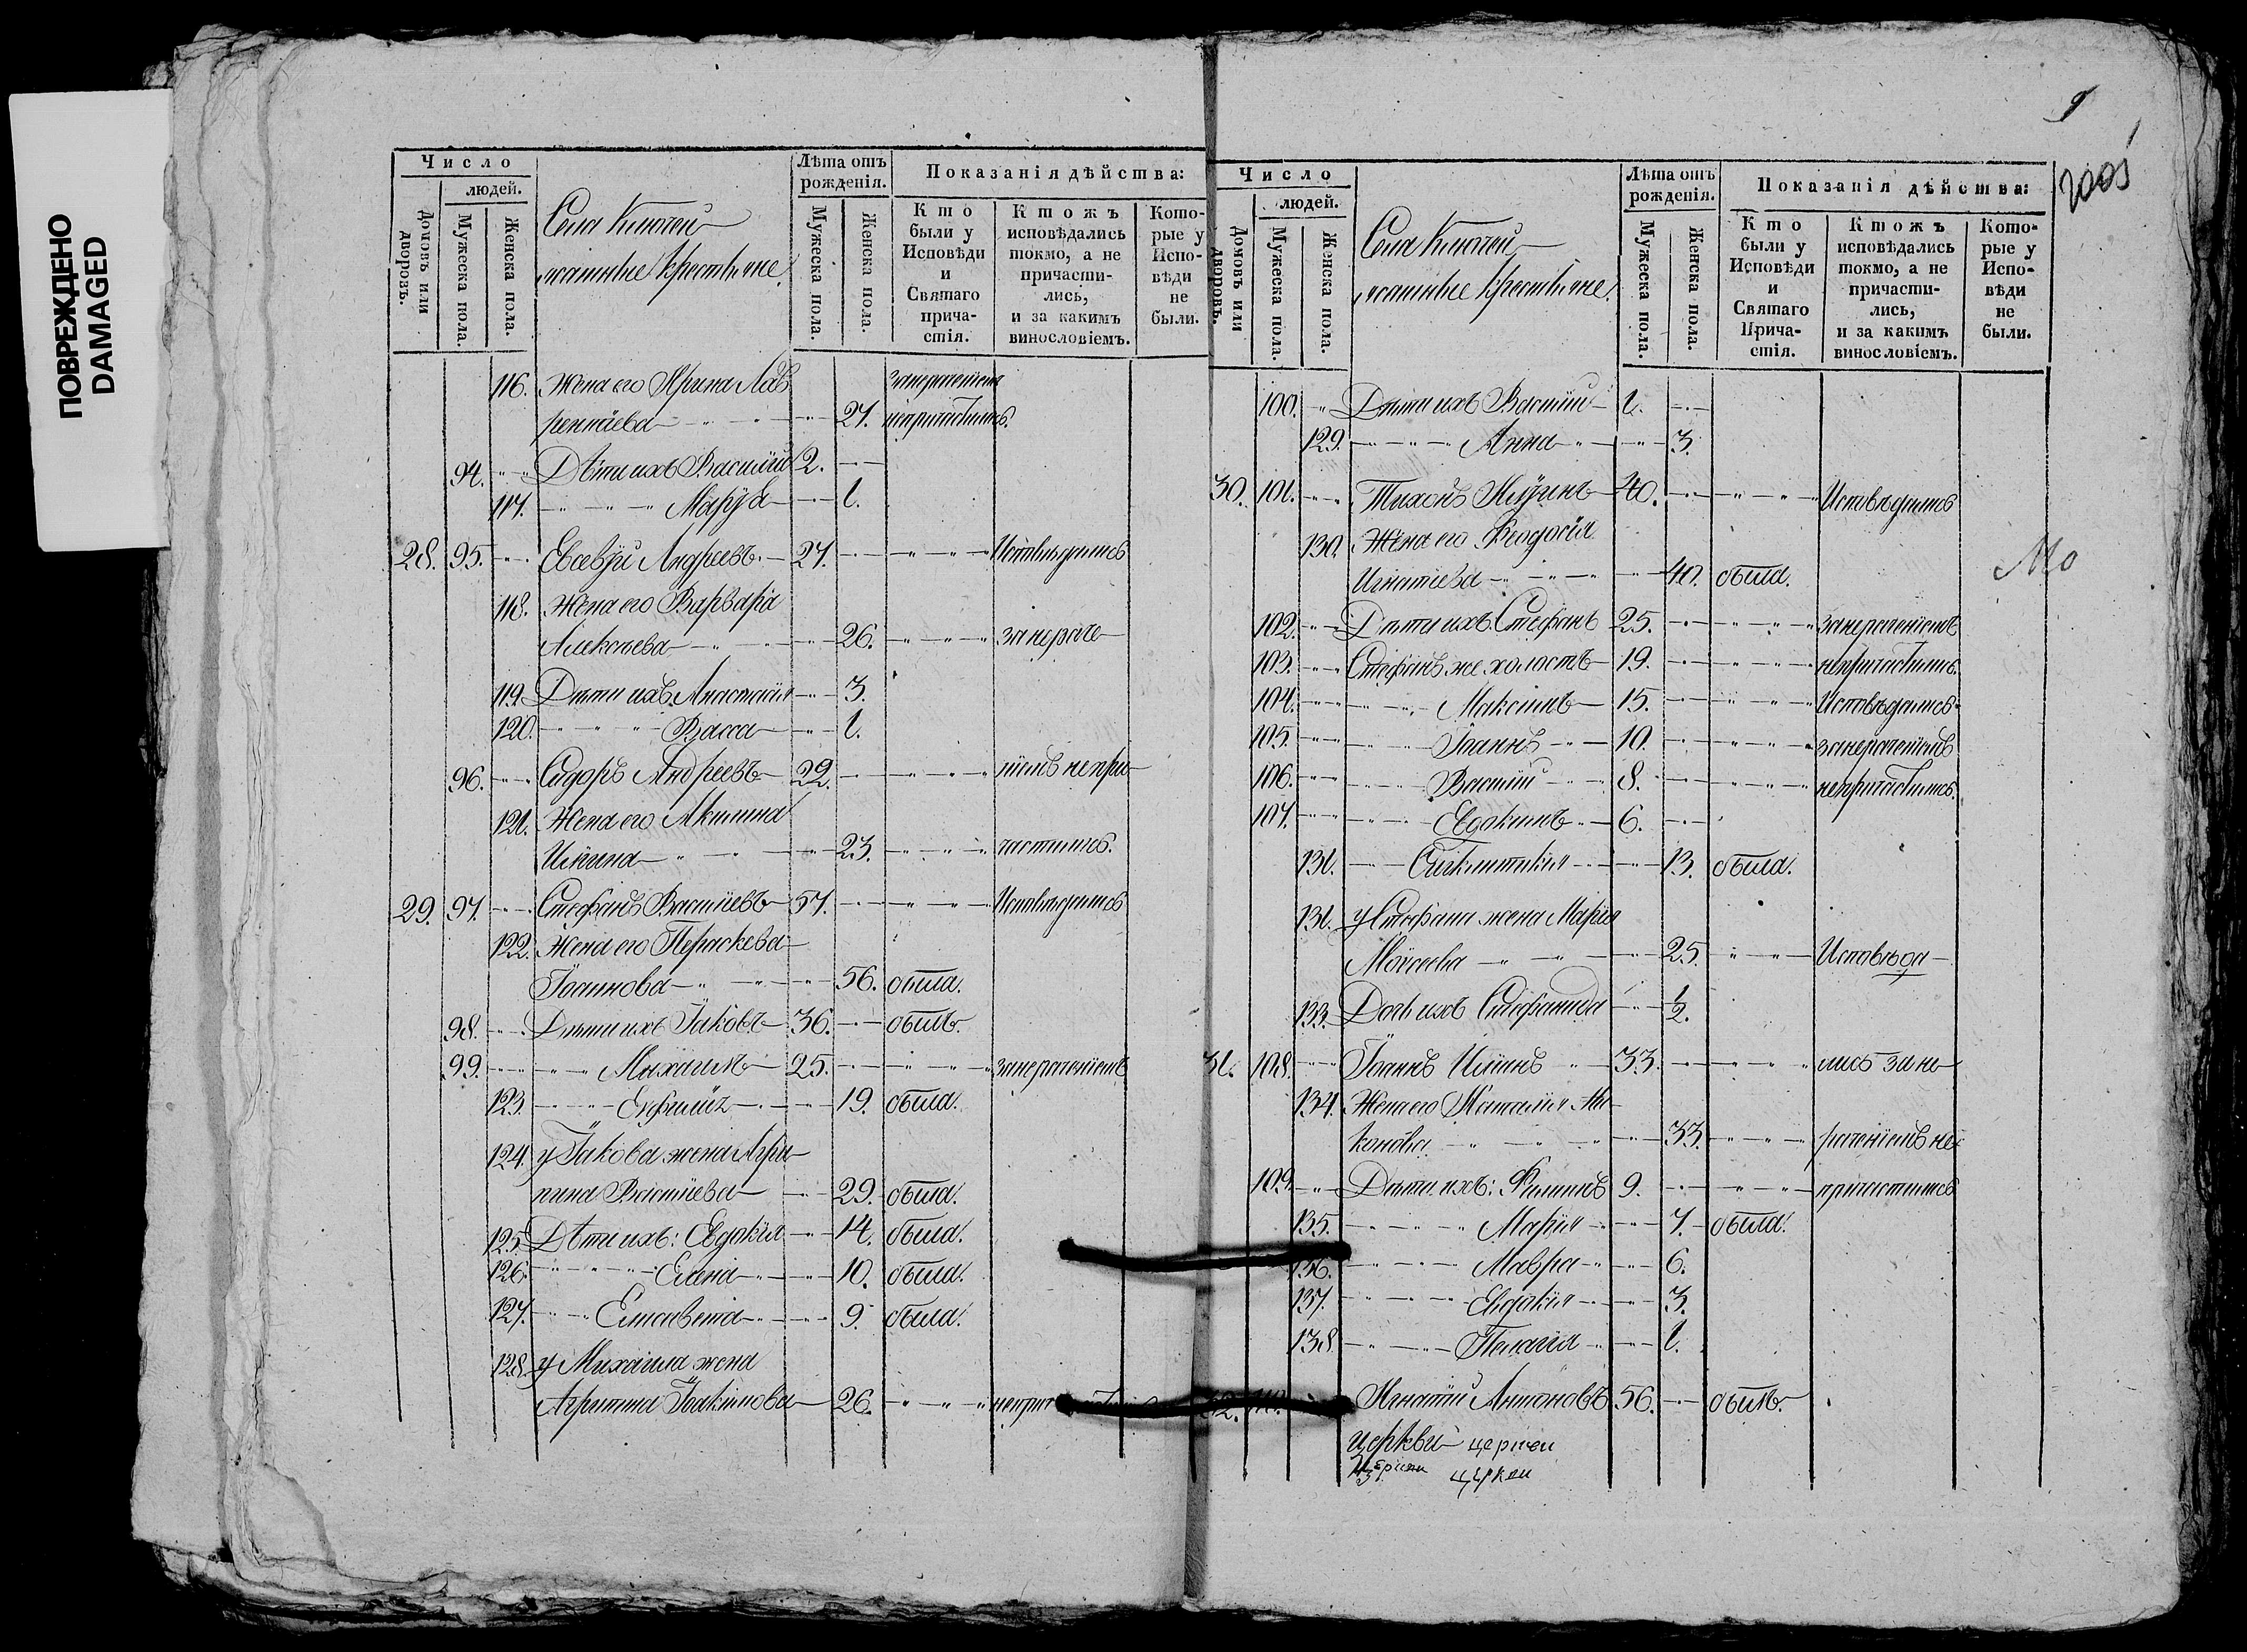 ПОВРЕЖДЕНО
DAMAGED
Число
людей.
Домовъ или дворовъ.
Мужеска пола.
Женска пола.
Села Ключей
крестьяне
Лѣта отъ рожденія.
Мужеска пола
Женска пола.
Показанія дѣйства:
Кто были у Исповѣди и Святаго причастія.
Ктожъ исповѣдались токмо, а не причастились, и за какимъ винословіемъ.
Которые у Исповѣди не были.
116. Жена его Ирина Лав
рентіева 27. непричастились.
94. Дѣти ихъ Василій 2.
117. Марѳа 1.
28. 95. Евсевій Андреевъ 27. Исповѣдались
118. Жена его Варвара
Алексѣева 26. занераче
119. Дѣти ихъ Анастасія 3.
120. Васса 1.
96. Сидоръ Андреевъ 22. ніемъ непри
121. Жена его Акилина
Ильина 23. частились.
29. 97. Стефанъ Васильевъ 57. Исповѣдались
122. Жена его Параскева
Іоаннова 56. была.
98. Дѣти ихъ Іаковъ 36. былъ.
99. Михаилъ 25. занераченіемъ
123. 19. была.
124. у Іакова жена Агри
пина Васильева 29. была.
125. Дѣти ихъ: Евдокія 14. была.
126. Елена 10. была.
127. Елисавета 9. была.
128. у Михаила жена
Агрипина Іоакимова 26.
9
2005
Число
людей.
Домовъ или дворовъ.
Мужеска пола.
Женска пола.
Села Ключей
крестьяне
Лѣта отъ рожденія.
Мужеска пола.
Женска пола.
Показанія дѣйства:
Кто были у Исповѣди и Святаго Причастія.
Ктожъ исповѣдались токмо, а не причастились, и за какимъ винословіемъ.
Которые у Исповѣди не были.
100. Дѣти ихъ Василій 1.
129. Анна 3.
30. 101. Тихонъ 40. Исповѣдались
130. Жена его Ѳеодосія
Игнатіева 40. была.
102. Дѣти ихъ Стефанъ 25. занераченіемъ
103. Стефанъ же холостъ 19. непричастились.
104. Максимъ 15. Исповѣдались
105. Іоаннъ 10. занераченіемъ
106. Василій 8. непричастились.
107. Евдокимъ 6.
131. 13. была.
131. у Стефана жена Марія
Моисеева 25. Исповѣда
133. Дочь ихъ Стефанида 1/2.
31. 108. Іоаннъ Ильинъ 33. лись за не
134. Жена его Наталія Ни
конова 33. раченіемъ не
109. Дѣти ихъ: Филипъ 9. причастились
135. Марія 7. была.
136. Мавра 6.
137. Евдокія 3.
138. Пелагія 1.
32. 110. Игнатій Антоновъ 56. былъ.
церкви
церкви